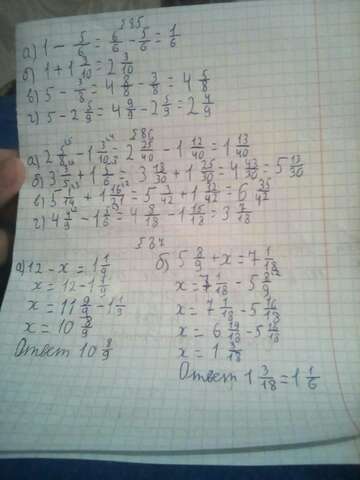 585
а) 1 - 5/6 = 6/6 - 5/6 = 1/6
б) 1 + 1 3/10 = 2 3/10
в) 5 - 3/8 = 4 8/8 - 3/8 = 4 5/8
г) 5 - 2 5/9 = 4 9/9 - 2 5/9 = 2 4/9
586
а) 2 5/8 - 1 3/10 = 2 25/40 - 1 12/40 = 1 13/40
б) 3 3/5 + 1 5/6 = 3 18/30 + 1 25/30 = 4 43/30 = 5 13/30
в) 5 1/14 + 1 16/21 = 5 3/42 + 1 32/42 = 6 35/42
г) 4 4/9 - 1 5/6 = 4 8/18 - 1 15/18 =
587
а) 12 - x = 1 1/9
x = 12 - 1 1/9
x = 11 9/9 - 1 1/9
x = 10 8/9
Ответ 10 8/9
б) 5 8/9 + x = 7 1/18
x = 7 1/18 - 5 8/9
x = 7 1/18 - 5 16/18
x = 6 19/18 - 5 16/18
x = 1 3/18
Ответ 1 3/18 = 1 1/6